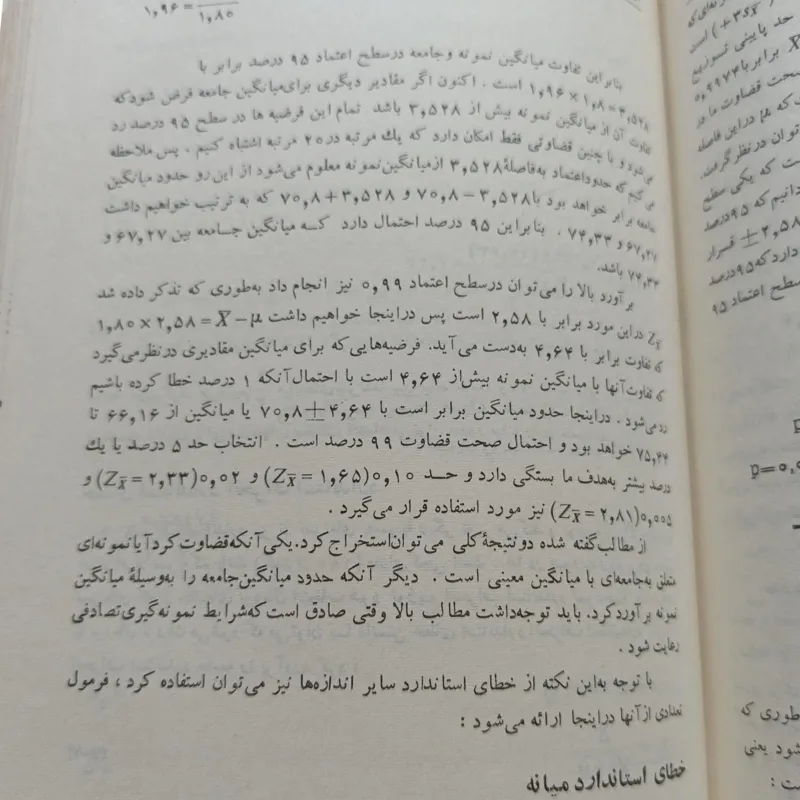 ۱٫۹۶ = ــــ / ۱٫۸۰
بنابراین تفاوت میانگین نمونه وجامعه درسطح اعتماد ۹۵ درصد برابر با
۳٫۵۲۸=۱٫۸×۱٫۹۶ است . اکنون اگر مقادیر دیگری برای‌میانگین جامعه فرض شودکه
تفاوت آن از میانگین نمونه بیش از ۳٫۵۲۸ باشد تمام این فرضیه ها در سطح ۹۵ درصد رد
می شود و با چنین قضاوتی فقط امکان دارد که یك مرتبه در۲۰ مرتبه اشتباه کنیم . پس ملاحظه
می کنیم که حدوداعتماد به‌فاصلهٔ ۳٫۵۲۸ ازمیانگین‌نمونه معلوم می‌شود از این‌رو حدود میانگین
جامعه برابر خواهد بود با ۳٫۵۲۸ − ۷۰٫۸ و ۳٫۵۲۸+۷۰٫۸ که به ترتیب خواهیم داشت
۶۷٫۲۷ و ۷۴٫۳۳ . بنابراین ۹۵ درصد احتمال دارد کـه میانگین جـامعه بین ۶۷٫۲۷ و
۷۴٫۳۳ باشد.
بر آورد بالا را می‌توان درسطح اعتماد ۰٫۹۹ نیز انجام داد به‌طوری که تذکر داده شد
Zx̄ دراین مورد برابر با ۲٫۵۸ است پس دراینجا خواهیم داشت ۱٫۸۰×۲٫۵۸ = X̄−μ
که تفاوت برابر با ۴٫۶۴ به‌دست می‌آید. فرضیه‌هایی‌که برای میانگین مقادیری درنظرمی‌گیرد
که تفاوت‌آنها با میانگین نمونه بیش‌از ۴٫۶۴ است با احتمال‌آنکه ۱ درصد خطا کرده باشیم
رد می‌شود . دراینجا حدود میانگین برابر است با ۴٫۶۴±۷۰٫۸ یا میانگین از ۶۶٫۱۶ تا
۷۵٫۴۴ خواهد بود و احتمال صحت قضاوت ۹۹ درصد است . انتخاب حد ۵ درصد یا یك
درصد بیشتر به‌هدف ما بستگی دارد و حـد ۰٫۱۰(Zx̄ = ۱٫۶۵) و ۰٫۰۲(Zx̄ = ۲٫۳۳) و
۰٫۰۰۵(Zx̄ = ۲٫۸۱) نیز مورد استفاده قرار می‌گیرد .
از مطالب‌گفته شده دو نتیجهٔ‌کلی می‌توان‌استخراج کرد.یکی‌آنکه‌قضاوت کردآیانمونه‌ای
متعلق به‌جامعه‌ای با میانگین معینی است . دیگر آنکه حدود میانگین‌جامعه را به‌وسیلهٔ میانگین
نمونه برآوردکرد. باید توجه‌داشت مطالب بالا وقتی صادق است‌که‌شرایط نمونه‌گیری‌تصادفی
رعایت شود .
با توجه به‌این نکته از خطای استاندارد سایر اندازه‌ها نیز می‌توان استفاده کرد ، فرمول
تعدادی ازآنها دراینجا ارائه می‌شود :
خطای استاندارد میانه
است (+۳sx̄
حد پایینی توزیع
برابر با ۰٫۹۹۷۴
صحت قضاوت ما در
که μ دراین فاصله
توان درنظرگرفت.
است که یکی سطح
دانیم که ۹۵درصد
±۲٫۵۸ قرار
دارد که۹۵درصد
سطح اعتماد ۹۵
p=۰٫۰
طوری که
شود یعنی
ت :